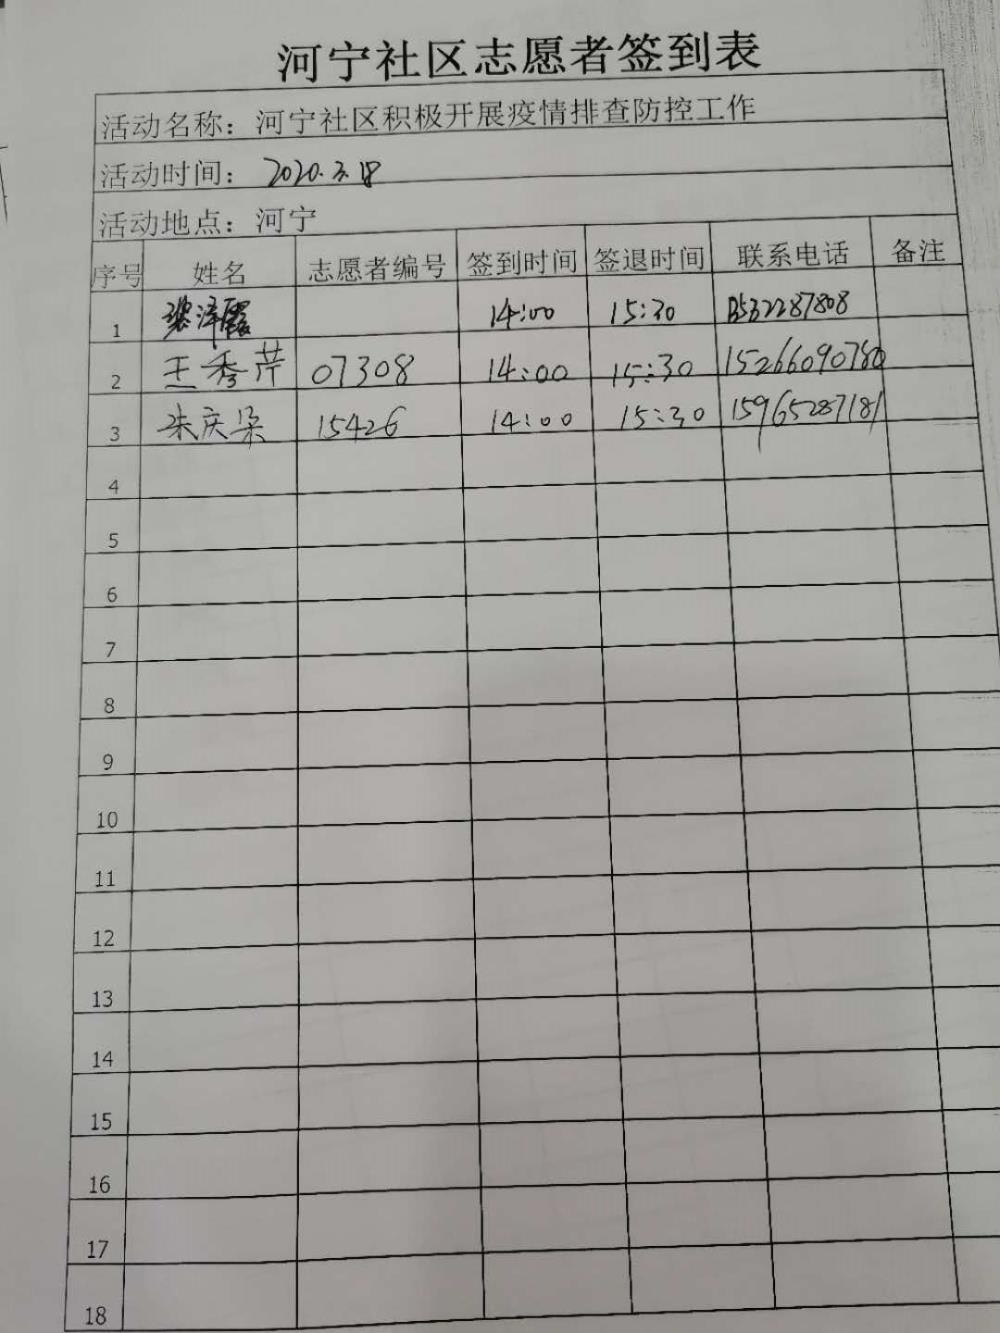 河宁社区志愿者签到表
活动名称：河宁社区积极开展疫情排查防控工作
活动时间：2020.3.18
活动地点：河宁
序号 姓名 志愿者编号 签到时间 签退时间 联系电话 备注
1 14:00 15:30
2 王秀芹 07308 14:00 15:30 15266090780
3 朱庆梁 15426 14:00 15:30 15965287181
4
5
6
7
8
9
10
11
12
13
14
15
16
17
18